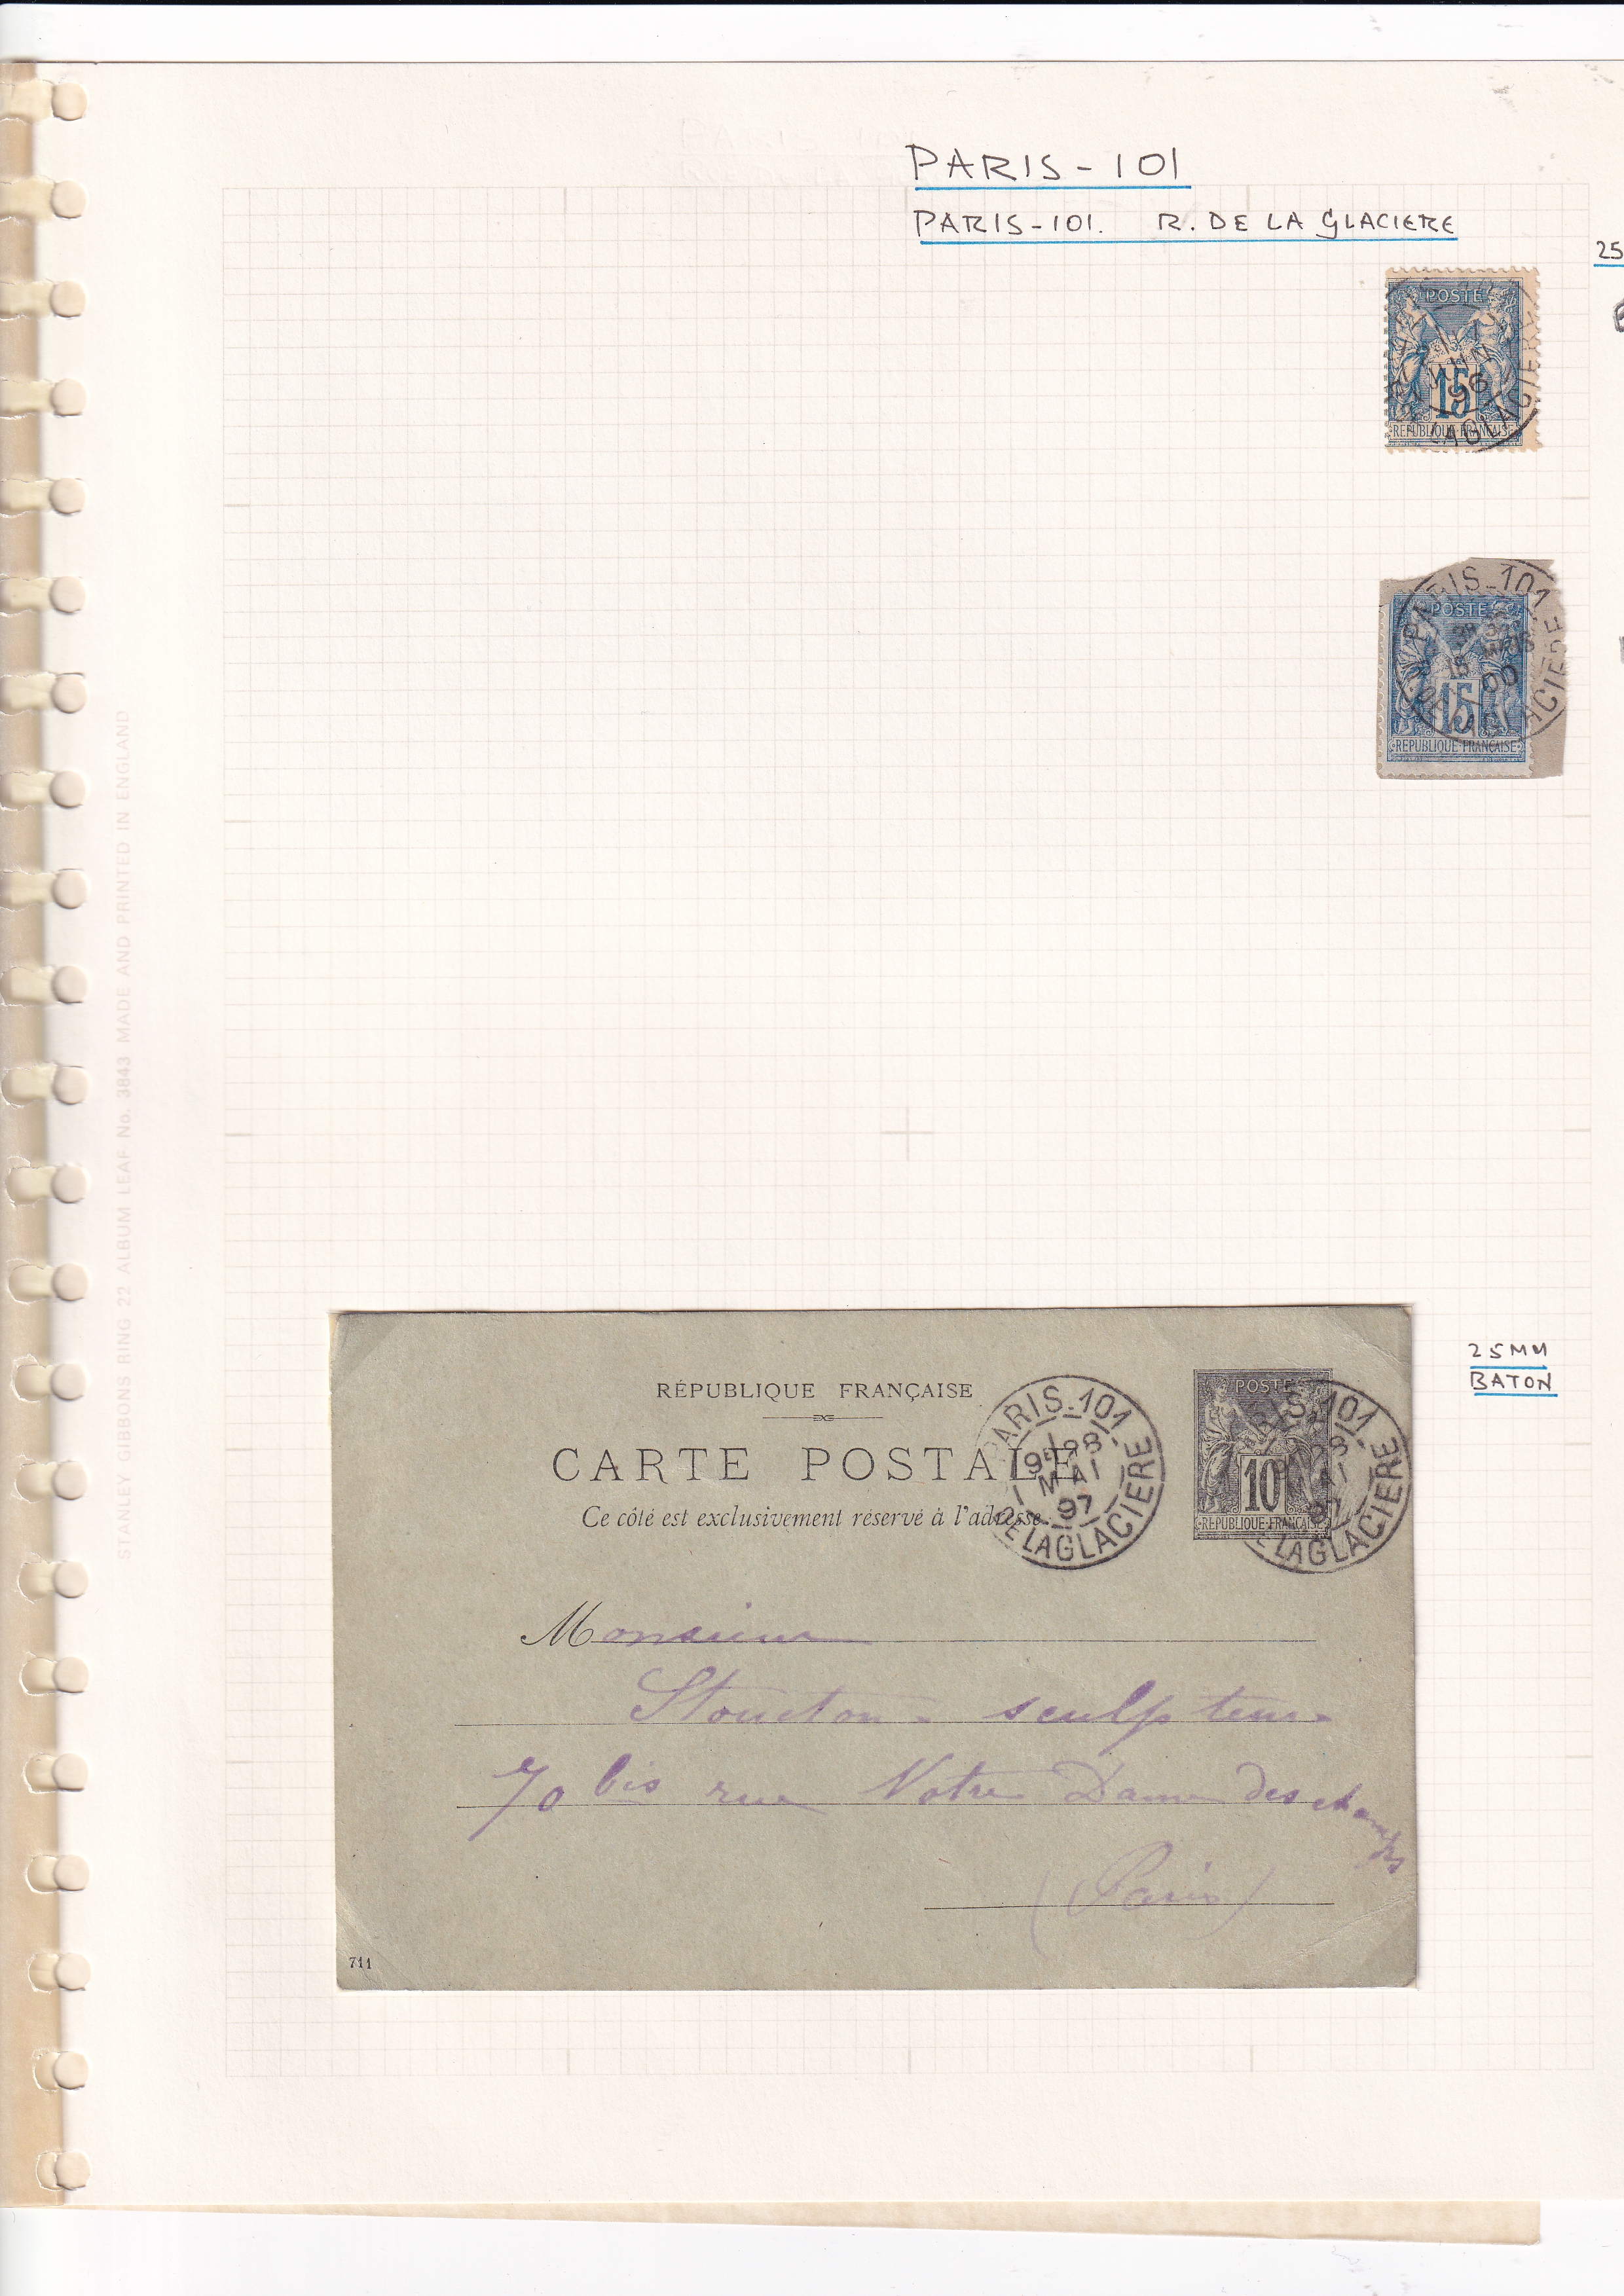 PARIS-101
PARIS-101. R. DE LA GLACIERE
25
POSTE
15
96
LAGLACIERE
REPUBLIQUE FRANÇAISE
PARIS-101
POSTE
15 MARS
00
15
DE LA GLACIERE
REPUBLIQUE FRANÇAISE
STANLEY GIBBONS RING 22 ALBUM LEAF No. 3843 MADE AND PRINTED IN ENGLAND
25MM
BATON
RÉPUBLIQUE FRANÇAISE
CARTE POSTALE
Ce côté est exclusivement réservé à l'adresse.
PARIS-101
28
MAI
97
DE LA GLACIERE
POSTE
10
REPUBLIQUE FRANÇAISE
PARIS-101
28
MAI
97
E LA GLACIERE
Monsieur
sculpteur
70 bis rue Notre Dame des champs
(Paris)
711